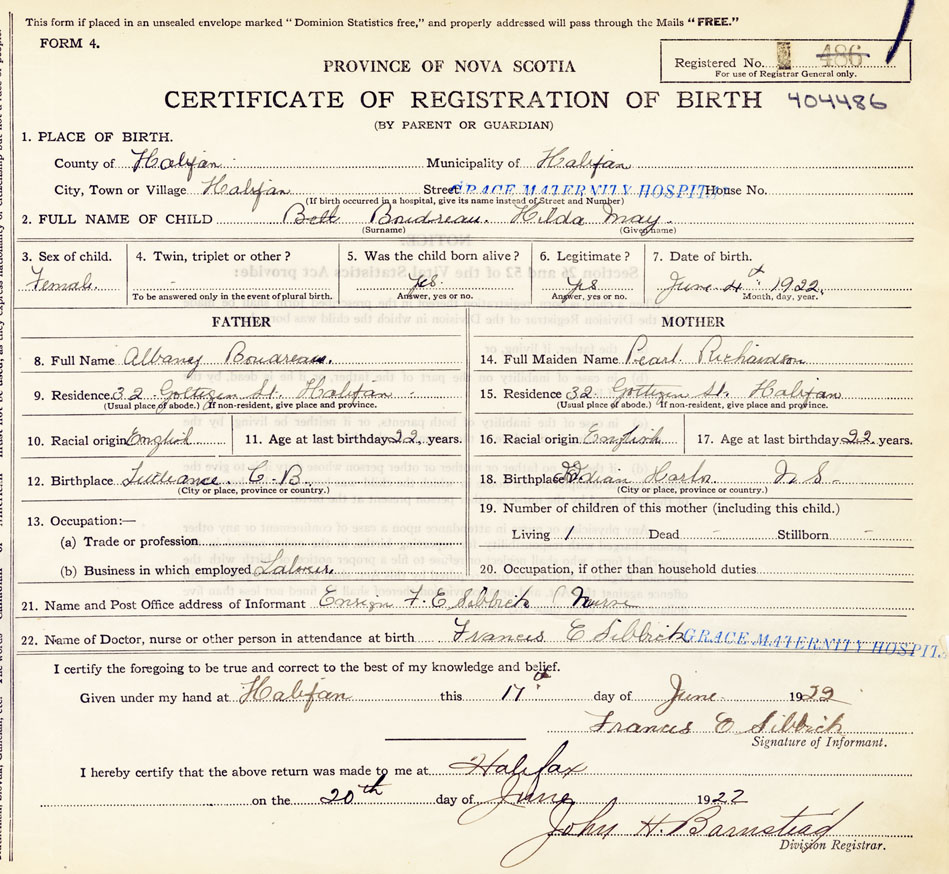 This form if placed in an unsealed envelope marked "Dominion Statistics free," and properly addressed will pass through the Mails "FREE."
FORM 4.
Registered No. 486
For use of Registrar General only.
PROVINCE OF NOVA SCOTIA
CERTIFICATE OF REGISTRATION OF BIRTH 404486
(BY PARENT OR GUARDIAN)
1. PLACE OF BIRTH.
County of Halifax Municipality of Halifax
City, Town or Village Halifax Street GRACE MATERNITY HOSPITAL House No.
(If birth occurred in a hospital, give its name instead of Street and Number)
2. FULL NAME OF CHILD Boudreau. Hilda May.
(Surname) (Given name)
3. Sex of child. 4. Twin, triplet or other? 5. Was the child born alive? 6. Legitimate? 7. Date of birth.
Female. yes. yes June 4th 1922.
To be answered only in the event of plural birth. Answer, yes or no. Answer, yes or no. Month, day, year.
FATHER MOTHER
8. Full Name Albany Boudreau. 14. Full Maiden Name Pearl Richardson
9. Residence 32 Gottigen St. Halifax 15. Residence 32 Gottigen St. Halifax
(Usual place of abode.) (If non-resident, give place and province. (Usual place of abode.) (If non-resident, give place and province.
10. Racial origin English 11. Age at last birthday 22 years. 16. Racial origin English 17. Age at last birthday 22 years.
12. Birthplace C. B. 18. Birthplace Indian Harbr N. S.
(City or place, province or country.) (City or place, province or country.)
13. Occupation:— 19. Number of children of this mother (including this child.)
(a) Trade or profession Living 1 Dead - Stillborn -
(b) Business in which employed Labour. 20. Occupation, if other than household duties
21. Name and Post Office address of Informant Ensign F. E Sibbick (Nurse
22. Name of Doctor, nurse or other person in attendance at birth Frances E Sibbick GRACE MATERNITY HOSPIT.
I certify the foregoing to be true and correct to the best of my knowledge and belief.
Given under my hand at Halifax this 17th day of June 1922
Frances E Sibbick
Signature of Informant.
I hereby certify that the above return was made to me at Halifax
on the 20th day of June 1922
John H. Barnstead
Division Registrar.